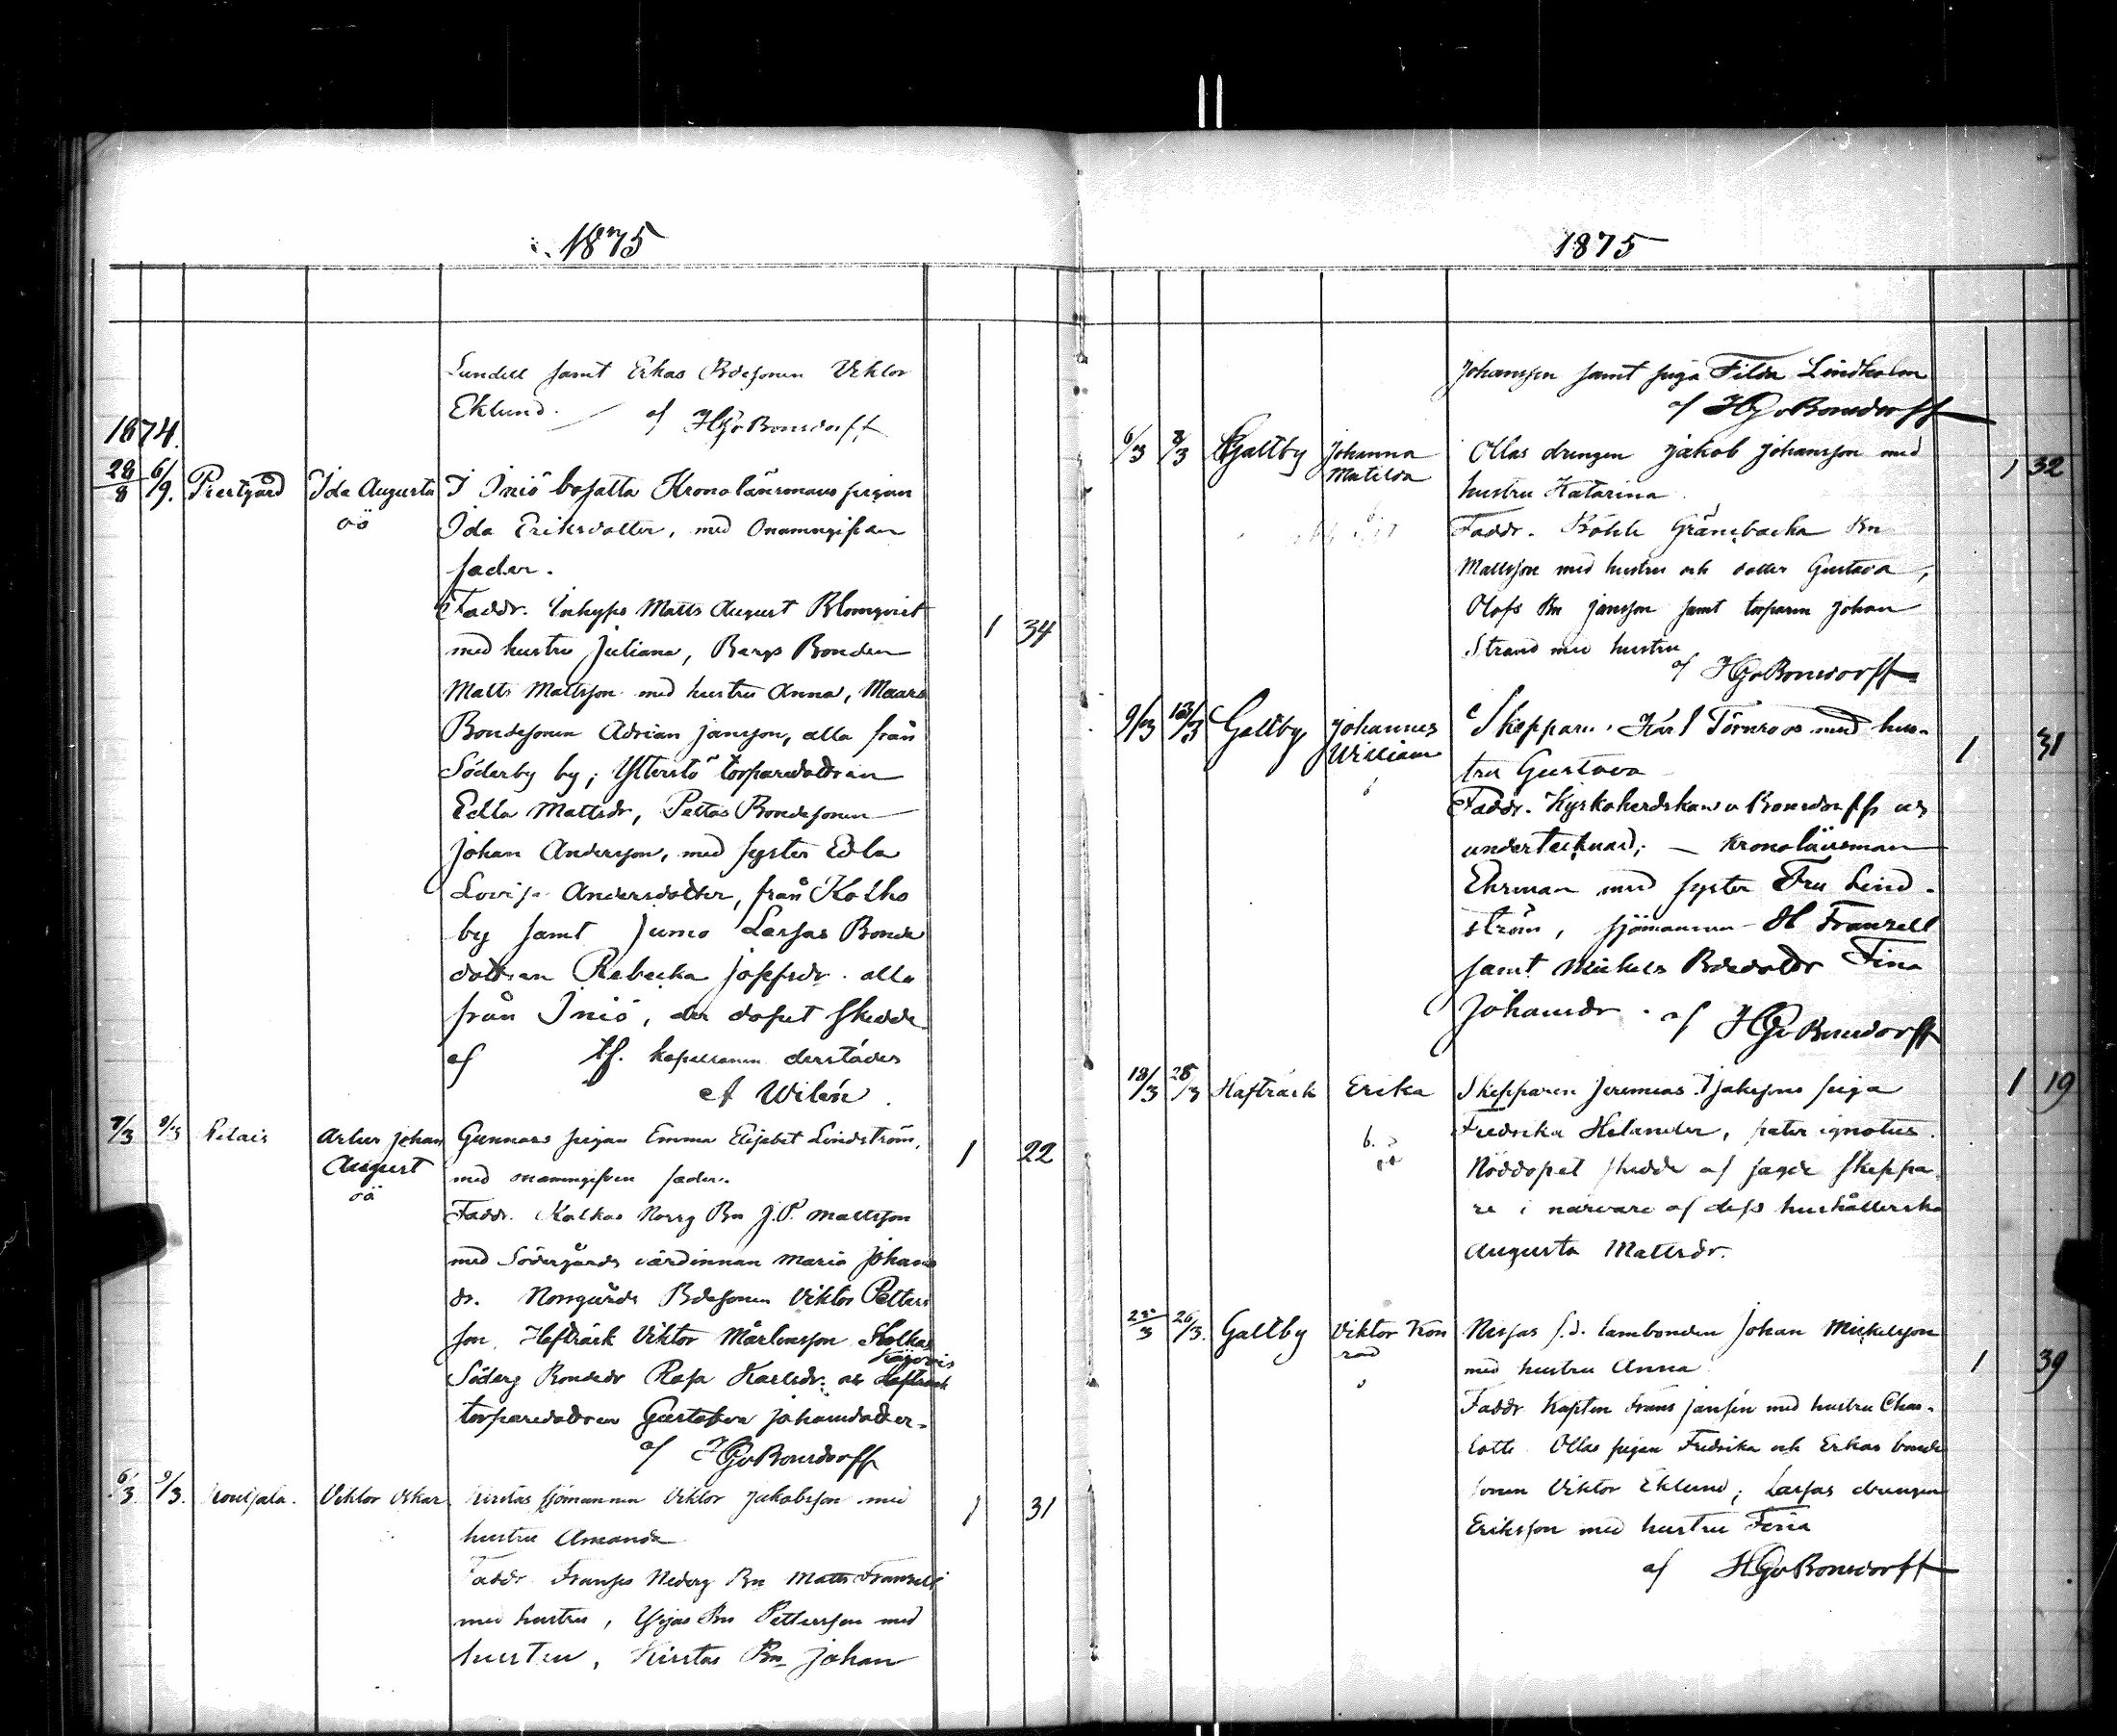 1875
Lundell samt Erkas Bdesonen Viktor
Eklund. af HGvBonsdorff
1874.
28/8 6/9. Prestgård Ida Augusta I Iniö bosatta Kronolänsmans pigan
oä Ida Eriksdotter, med onamngifvan
fader.
Faddr. Inhyses Matts August Blomqvist
med hustru Juliana, Bergs Bonden 1 34
Matts Mattsson med hustru Anna, Maars
Bondesonen Adrian Jansson, alla från
Söderby by; Ytterstö torparedottran
Edla Mattsdr, Pettas Bondesonen
Johan Andersson, med syster Edla
Lovisa Andersdotter, från Kolko
by samt Jumo Larsas Bonde
dottran Rebecka Josefsdr. alla
från Iniö, der dopet skedde
af tf. kapellanen derstädes
A Wilén.
7/3 9/3 Pelais Artur Johan Gunnars pigan Emma Elisabet Lindström, 1 22
August med onamngifven fader.
oä
Faddr. Kalkas Norrg Bn J.P. Mattsson
med Södergårds värdinnan Maria Johans
dr. Norrgårds Bdesonen Viktor Petters
son, Hafträsk Viktor Mårtensson Kalkas
Söderg Bondedr Rosa Karlsdr. och
torparedottren Gustafva Johansdotter.
af HGvBonsdorff
6/3 9/3. Viktor Oskar Kirstas sjömannen Viktor Jakobsson med 1 31
hustru Amanda
Faddr. Franses Nederg Bn Matts Franzell
med hustru, Bn Pettersson med
hustru, Kirstas Bn Johan
1875
Johansson samt piga Filda Lindholm
af HGvBonsdorff
6/3 8/3 Galtby Johanna Ollas drengen Jakob Johansson med 1 32
Matilda hustru Katarina
Faddr. Gränsbacka Bn
Mattsson med hustru och dotter Gustava,
Olofs Bn Jansson samt torparen Johan
Strand med hustru
af HGvBonsdorff
9/3 13/3 Galtby Johannes Skepparen Karl Törnroos med hus-
William tru Gustava 1 31
Faddr. Kyrkoherdskan v Bonsdorff och
undertecknad; — Kronolänsman
Ehrman med syster Fru Lind-
ström, sjömannen H Franzell
samt Mickels Bdedottr Fina
Johansdr. af HGvBonsdorff
18/3 28/3 Hafträsk Erika Skepparen Jeremias Isakssons piga 1 19
Fredrika Helander, pater ignotus.
Nöddopet skedde af sagde skeppa-
re i närvaro af dess hushållerska
Augusta Mattsdr.
25/3 26/3. Galtby Viktor Kon Nissas f.d. lambonden Johan Mickelsson
rad med hustru Anna 1 39
Faddr Kapten Frans Jansén med hustru Char-
lotte. Ollas pigan Fredrika och Erkas bonde
sonen Viktor Eklund; Larsas drengen
Eriksson med hustru Fina
af HGvBonsdorff